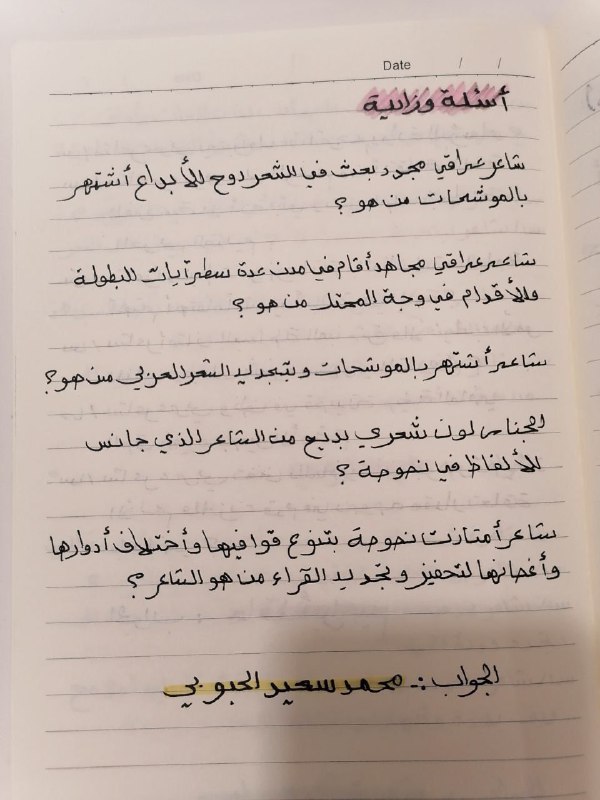 Date / /
أسئلة وزارية
شاعر عراقي مجدد بعث في الشعر روح الأبداع أشتهر
بالموشحات من هو ؟
شاعر عراقي مجاهد أقام في مدن عدة سطر آيات للبطولة
والأقدام في وجة المحتل من هو ؟
شاعر أشتهر بالموشحات وبتجديد الشعر العربي من هو ؟
الجناس لون شعري بديع من الشاعر الذي جانس
الألفاظ في نصوصة ؟
شاعر أمتازت نصوصة بتنوع قوافيها وأختلاف أدوارها
وأغصانها لتحفيز وتجديد القراء من هو الشاعر ؟
الجواب :- محمد سعيد الحبوبي